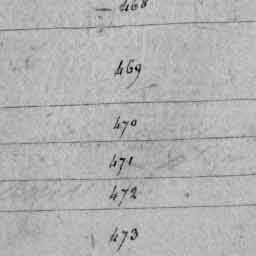 — 468
469
470
471
472
473